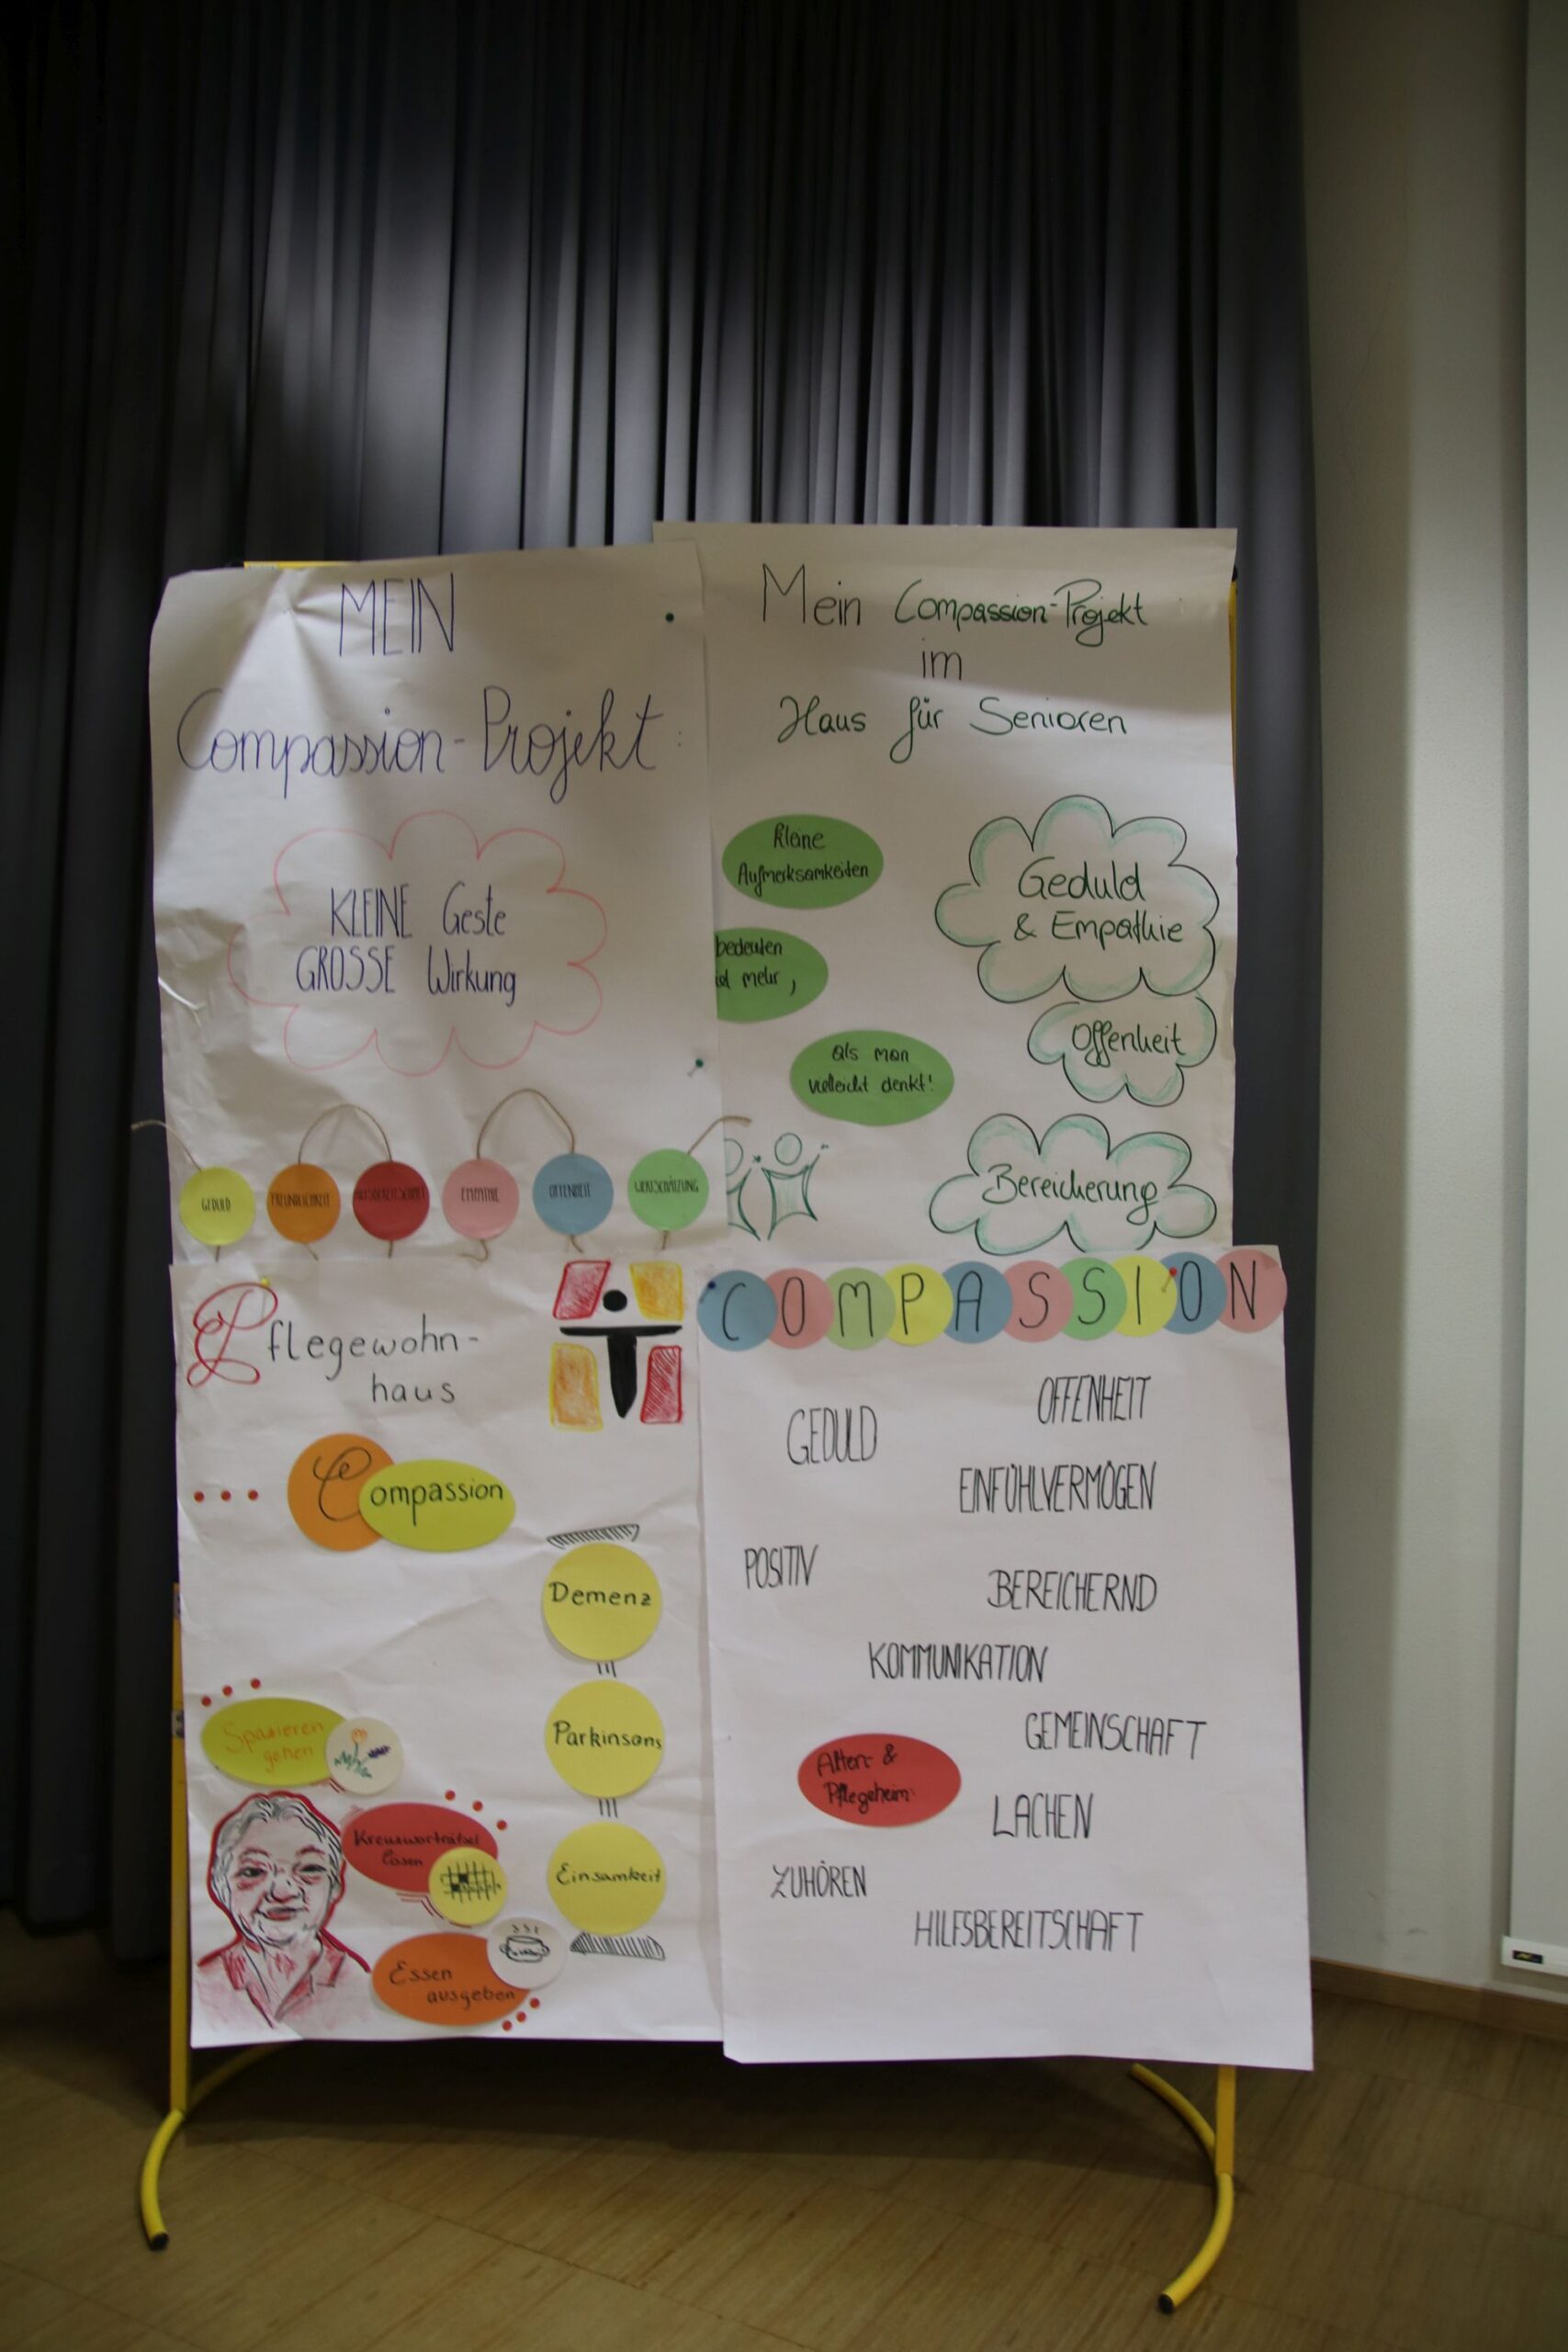 MEIN
Compassion-Projekt:
KLEINE Geste
GROSSE Wirkung
GEDULD
FREUNDLICHKEIT
EMPATHIE
OFFENHEIT
WERTSCHÄTZUNG
Mein Compassion-Projekt
im
Haus für Senioren
kleine
Aufmerksamkeiten
bedeuten
mehr,
als man
vielleicht denkt!
Geduld
& Empathie
Offenheit
Bereicherung
Pflegewohn-
haus
Compassion
Demenz
Parkinsons
Einsamkeit
Spazieren
gehen
Kreuzworträtsel
lösen
Essen
ausgeben
COMPASSION
OFFENHEIT
GEDULD
EINFÜHLVERMÖGEN
POSITIV
BEREICHERND
KOMMUNIKATION
GEMEINSCHAFT
Alten- &
Pflegeheim
LACHEN
ZUHÖREN
HILFSBEREITSCHAFT